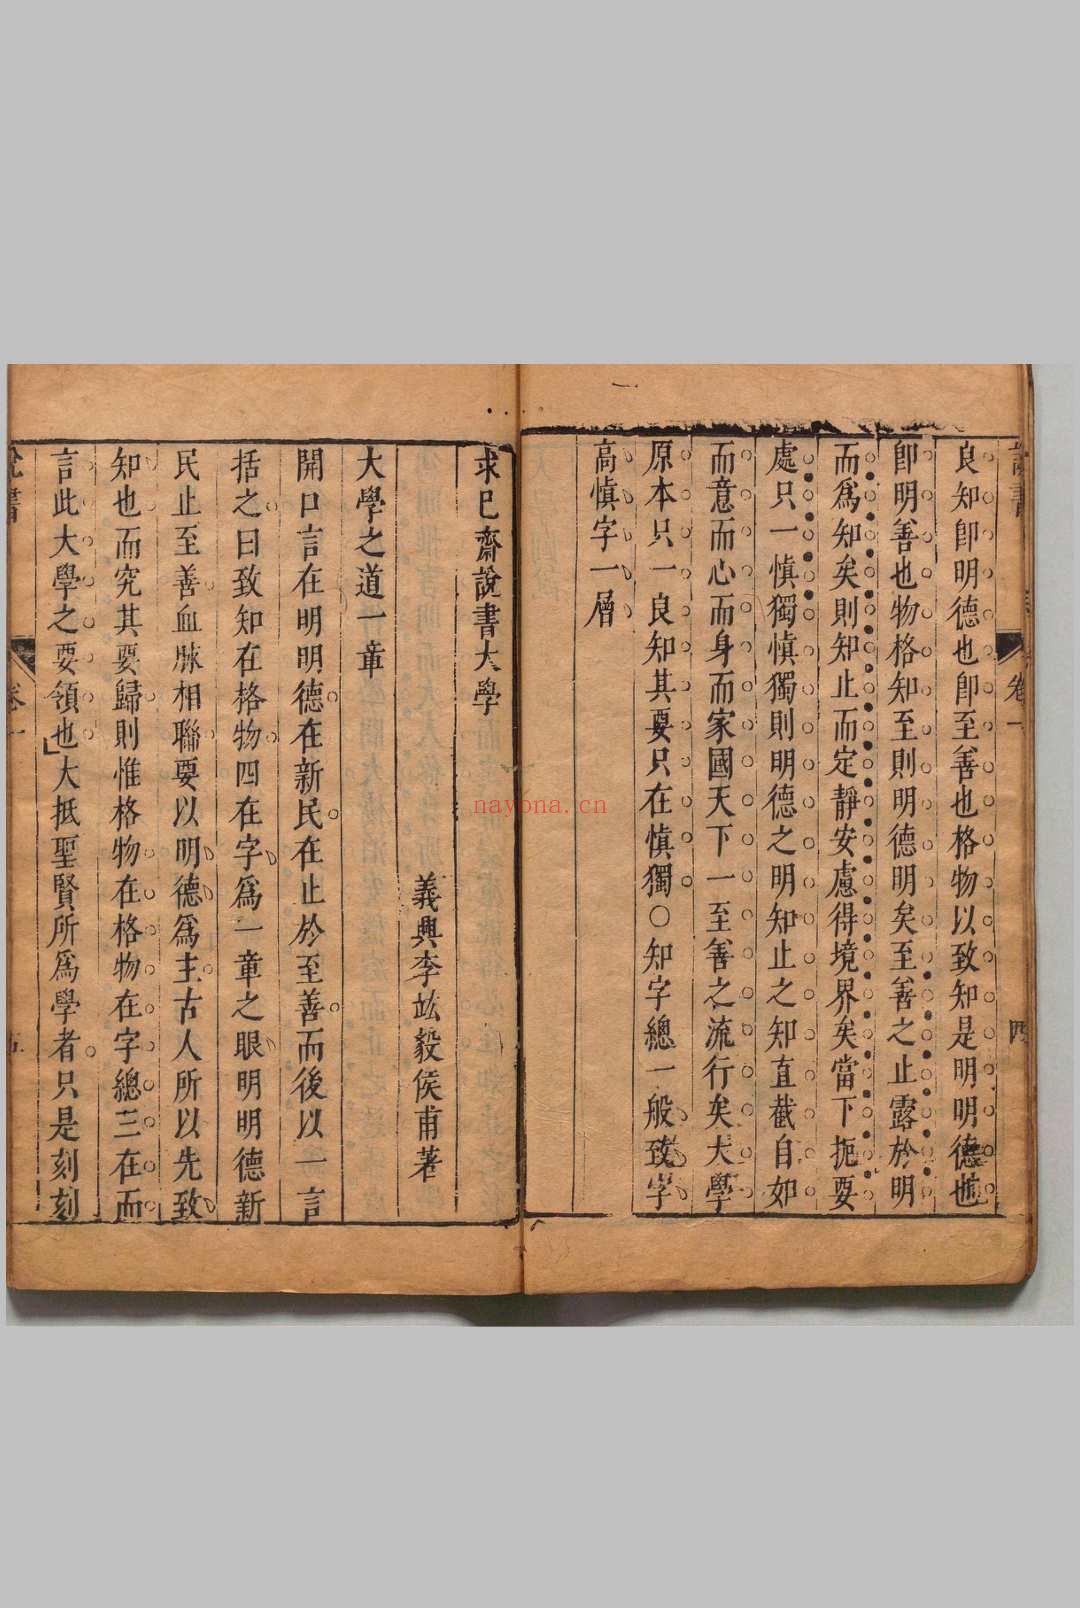 說書
卷一
四
良知卽明德也卽至善也格物以致知是明明德也
卽明善也物格知至則明德明矣至善之止露於明
而爲知矣則知止而定靜安慮得境界矣當下扼要
處只一愼獨愼獨則明德之明知止之知直截自如
而意而心而身而家國天下一至善之流行矣大學
原本只一良知其要只在愼獨○知字總一般致字
高愼字一層
求巳齋說書大學
義興李竑毅侯甫著
大學之道一章
開口言在明明德在新民在止於至善而後以一言
括之曰致知在格物四在字爲一章之眼明明德新
民止至善血脉相聯要以明德爲主古人所以先致
知也而究其要歸則惟格物在格物在字總三在而
言此大學之要領也」大抵聖賢所爲學者只是刻刻
說書
卷一
五
nayona.cn